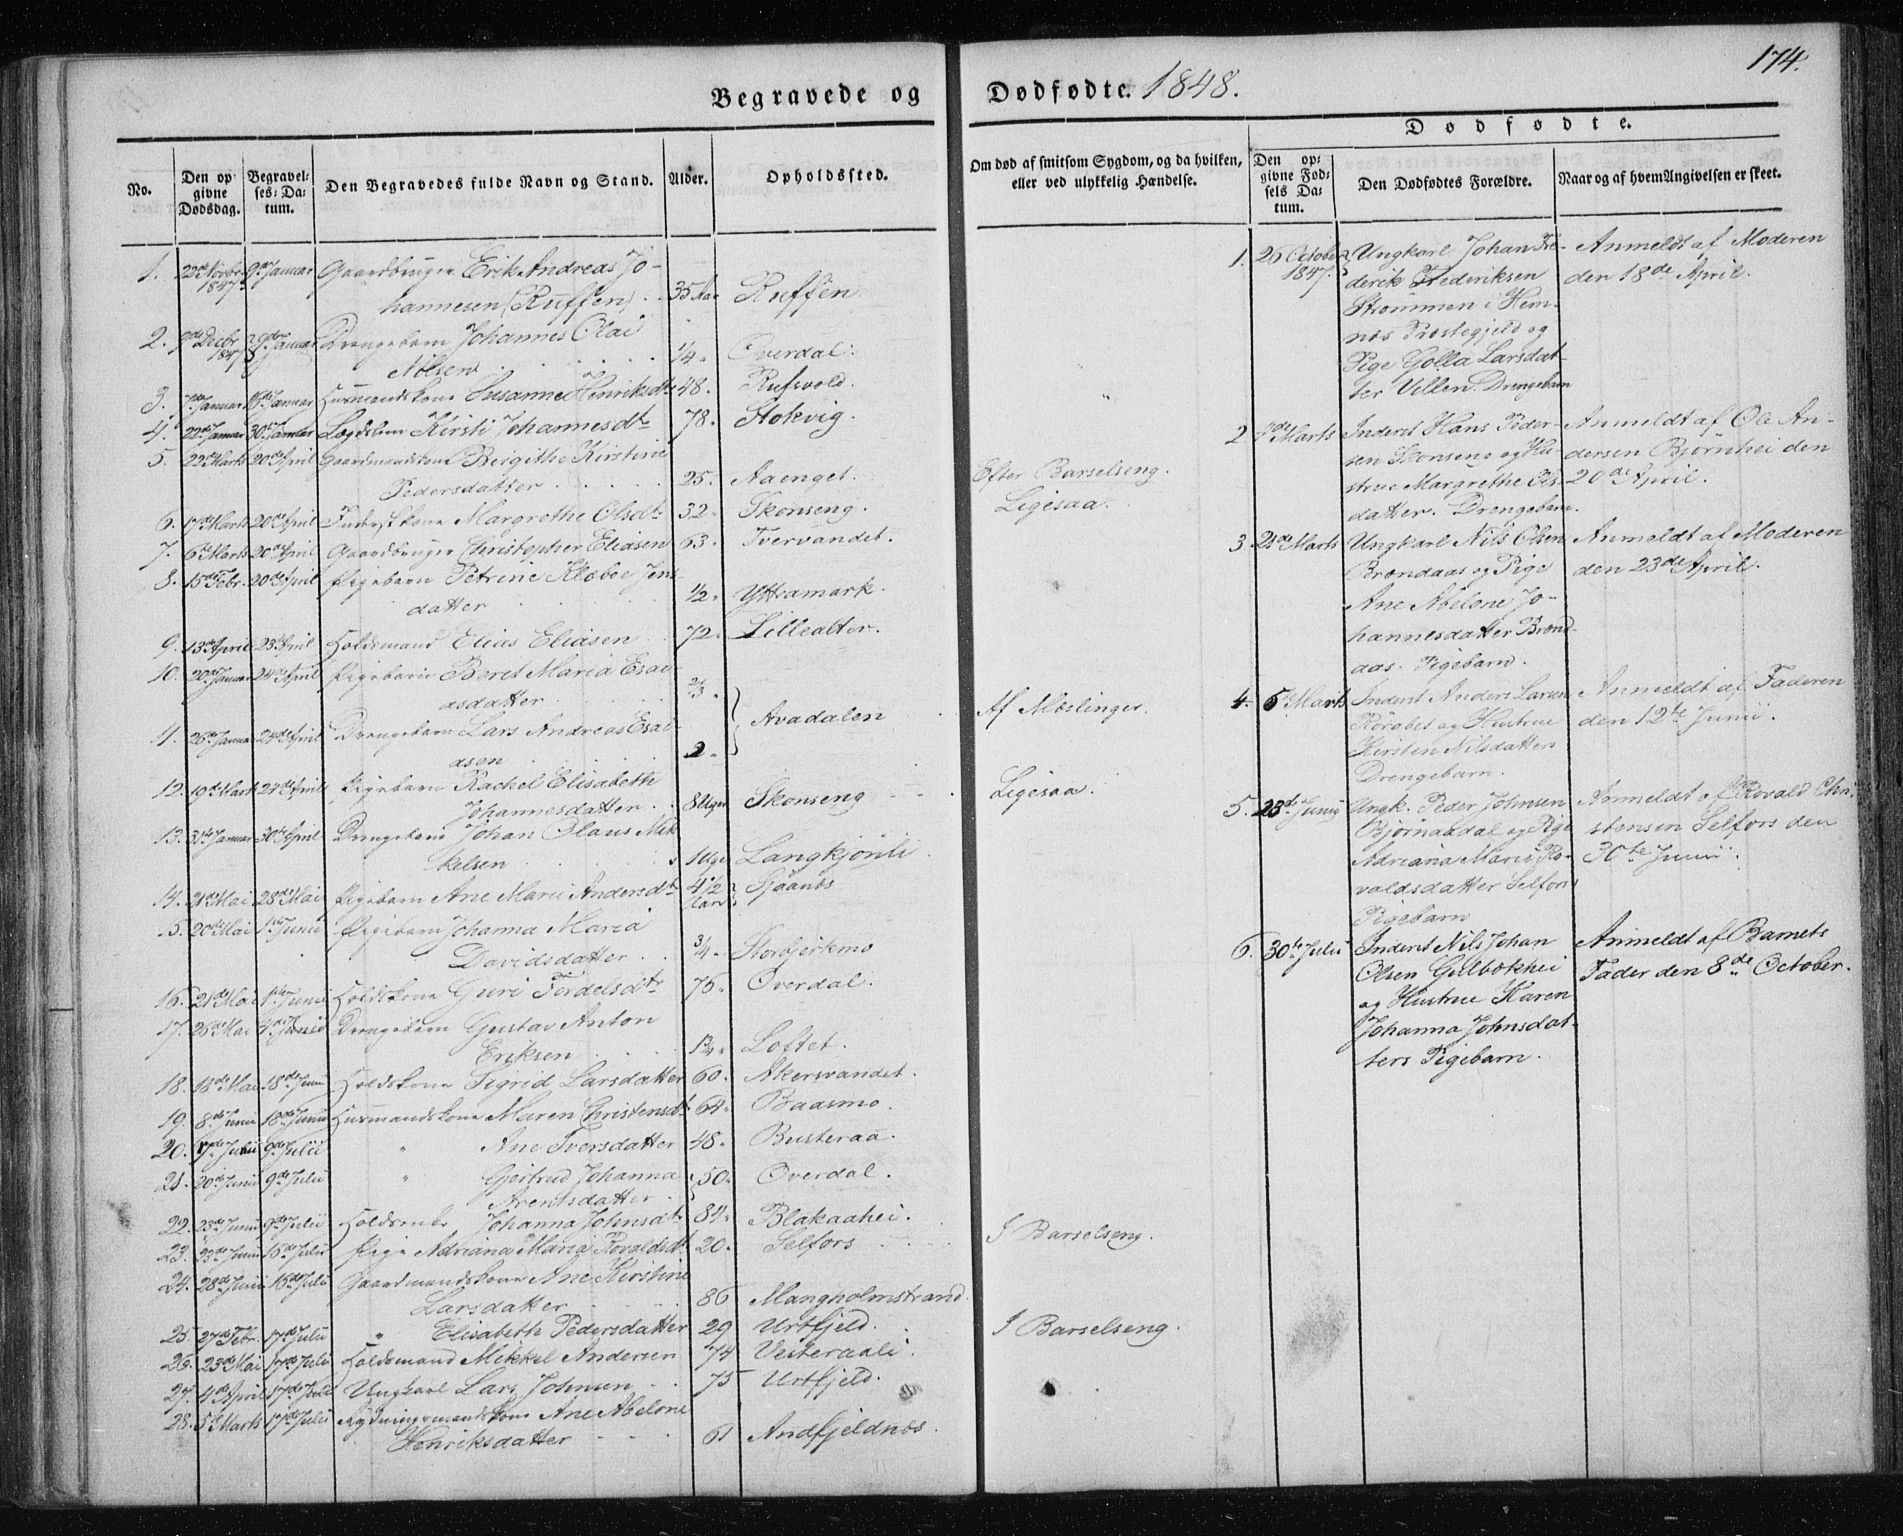 174.
Begravede og Dødfødte. 1848.
Dødfødte.
No.
Den opgivne Dødsdag.
Begravelses-Datum.
Den Begravedes fulde Navn og Stand.
Alder.
Opholdssted.
Om død af smitsom Sygdom, og da hvilken, eller ved ulykkelig Hændelse.
Den opgivne Fødsels Datum.
Den Dødfødtes Forældre.
Naar og af hvem Angivelsen er skeet.
1. 22de Novbr 1847. 9de Januar Gaardbruger Erik Andreas Jo-
hannesen (Ruffen) . . 35 Aar Ruffen
2. Decbr 1847 9de Januar Drengebarn Johannes Olai
Nilsen . . . . . 1/4 " Overdal.
3. 7de Januar 16de Januar Husmandskone Susanne Henriksdtr 48. Rufsvold.
4. 22de Januar 30te Januar Lægdslem Kirsti Johannesdtr 78. Stokvig.
5. 22de Marts 20de April Gaardmandskone Birgithe Kirstine
Pedersdatter . . . . 25. Aaenget. Efter Barselseng.
6. 17de Marts 20de April Inderstkone Margrethe Olsdtr 32. Skonseng. Ligesaa.
7. 6te Marts 20de April Gaardbruger Christopher Eliasen 63. Tvervandet.
8. 15de Febr. 20de April Pigebarn Petrine Klæboe Jens-
datter . . . . 1/2 " Yttramark.
9. 13de April 23de April Holdsmand Elias Eliasen . . 72. Lillealter.
10. 20de Januar 24de April Pigebarn Beret Maria Esai-
asdatter . . . 2/3 "
11. 26de Januar 24de April Drengebarn Lars Andreas Esai-
asen . . . . 2 " } Avadalen . Af Meslinger.
12. 19de Marts 24de April Pigebarn Rachel Elisabeth
Johannesdatter . . 8 Uger Skonseng Ligesaa.
13. 31te Januar 30te April Drengebarn Johan Olaus Mik-
kelsen . . . . 1 Uge Langkjønli
14. 21de Mai 28de Mai Pigebarn Ane Marie Andersdtr 4 1/2 Aar Sjøanes
15. 20de Mai 1ste Junii Pigebarn Johanna Maria
Davidsdatter . . 3/4 " Storbjerkmo
16. 21de Mai 1ste Junii Holdskone Guri Tordelsdtr 76. Overdal.
17. 26de Mai 4de Junii Drengebarn Gustav Anton
Eriksen . . . . 1 3/4 " Loftet.
18. 18de Mai 18de Junii Holdskone Sigrid Larsdatter 60. Akersvandet.
19. 8de Junii 18de Junii Husmandskone Maren Christensdtr 64. Baasmo.
20. 17de Junii 9de Julii " Ane Iversdatter 48. Busteraa.
21. 20de Junii 9de Julii " Gjertrud Johanna
Arentsdatter . 50. Overdal.
22. 23de Junii 9de Julii Holdsenke Johanna Johnsdtr 84. Blakaahei.
23. 23de Junii 16de Julii Pige Adriana Maria Rovaldsdtr 20. Selfors I Barselseng.
24. 28de Junii 16de Julii Gaardmandskone Ane Kirstine
Larsdatter . . . 86 Mangholmstrand
25. 27de Febr. 17de Julii " Elisabeth Pedersdatter 29 Urtfjeld. I Barselseng.
26. 23de Mai 17de Julii Holdsmand Mikkel Andersen 74 Vesteraali.
27. 4de April 17de Julii Ungkarl Lars Johnsen . . 75 Urtfjeld.
28. 5te Marts 17de Julii Rydningsmandskone Ane Abelone
Henriksdatter . . . 61 Andfjeldnes.
1. 26 October 1847. Ungkarl Johan Fre-
derik Frederiksen
Strømmen i Hem-
nes Præstegjeld og
Pige Golla Larsdat-
ter Villen. Drengebarn
Anmeldt af Moderen
den 18de April.
2 Marts Inderst Hans Peder-
sen Skonseng og Hu-
strue Margrethe Ols-
datter. Drengebarn.
Anmeldt af Ole An-
dersen Bjørnhei den
20de April.
3. 21de Marts Ungkarl Nils Olsen
Brændaas og Pige
Ane Abelone Jo-
hannesdatter Brænd-
aas. Pigebarn.
Anmeldt af Moderen
den 23de April.
4. 5te Marts Inderst Anders Larsen
Rørabet og Hustrue
Kirsten Nilsdatters
Drengebarn.
Anmeldt af Faderen
den 12te Junii.
5. 23de Junii Ungk. Peder Johnsen
Bjørnaadal og Pige
Adriana Marie Ro-
valdsdatter Selfors
Pigebarn
Anmeldt af Rovald Chri-
stensen Selfors den
30te Junii.
6. 30te Julii Inderst Nils Johan
Olsen Gulbækhei
og Hustrue Karen
Johanna Johnsdat-
ters Pigebarn.
Anmeldt af Barnets
Fader den 8de October.